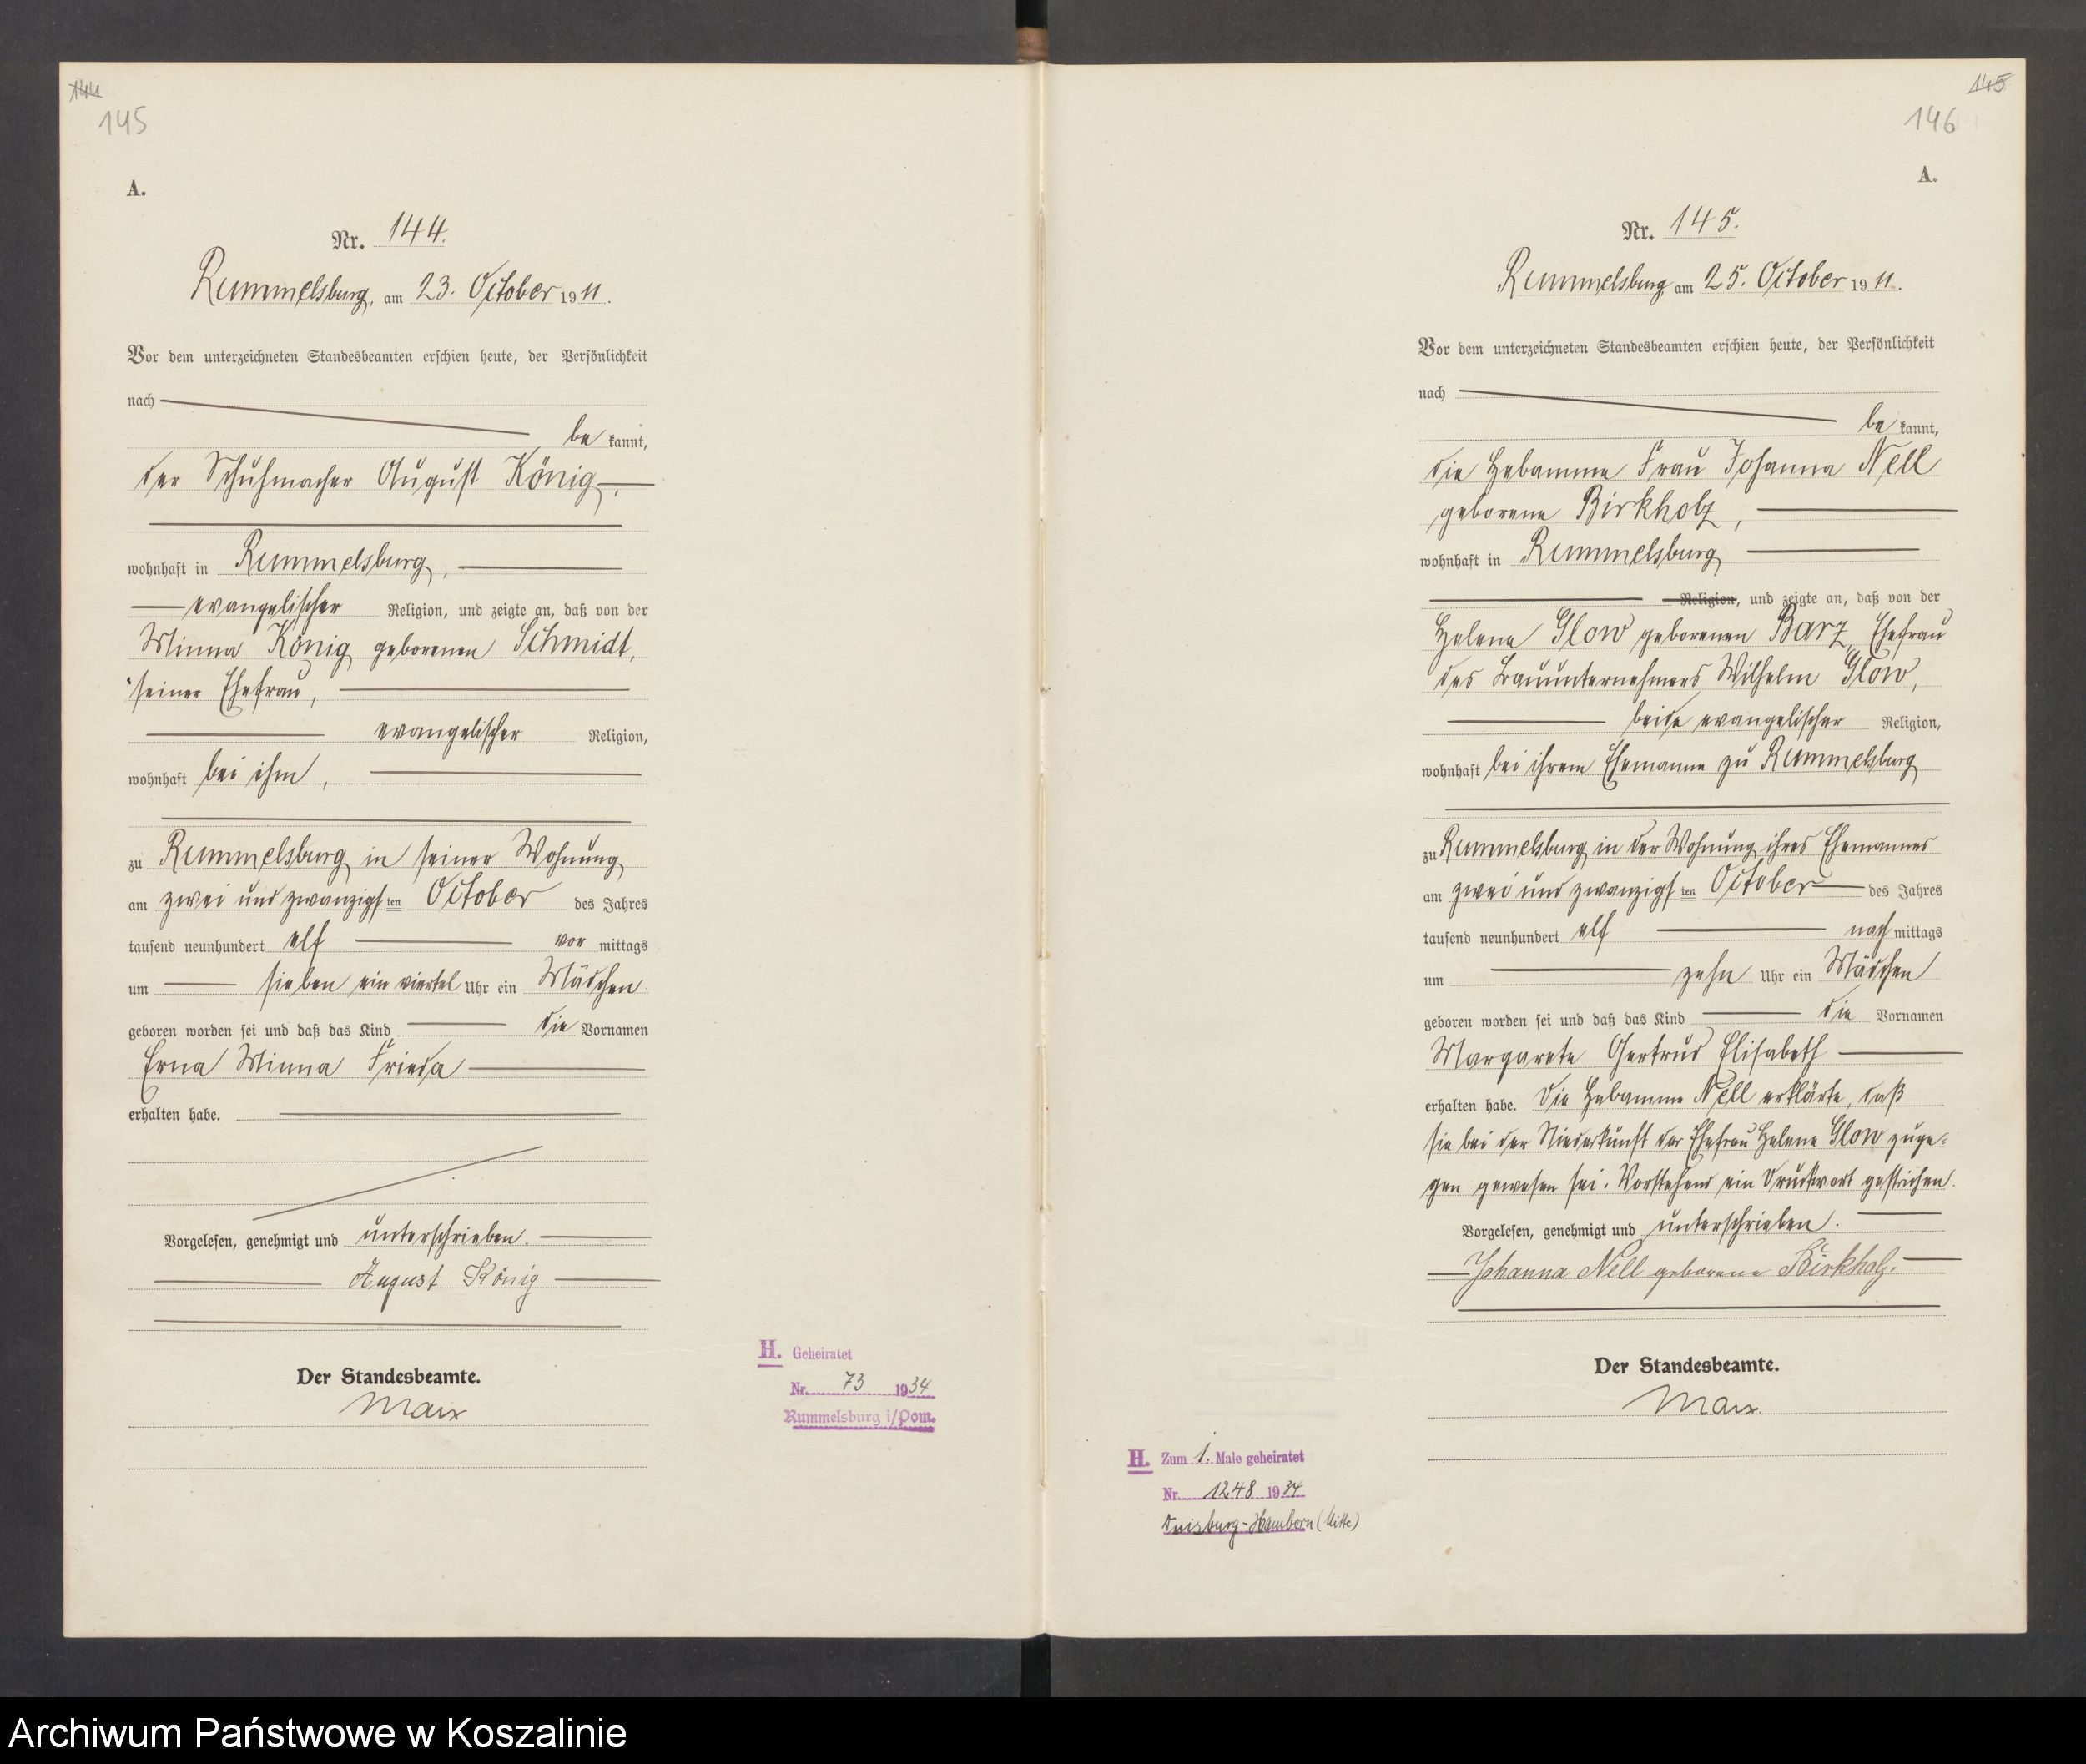 144
145
A.
Nr. 144.
Rummelsburg, am 23. October 1911.
Vor dem unterzeichneten Standesbeamten erschien heute, der Persönlichkeit
nach
be kannt,
der Schuhmacher August König,
wohnhaft in Rummelsburg,
evangelischer Religion, und zeigte an, daß von der
Minna König geborenen Schmidt,
seiner Ehefrau,
evangelischer Religion,
wohnhaft bei ihm,
zu Rummelsburg in seiner Wohnung
am zwei und zwanzigsten October des Jahres
tausend neunhundert elf vor mittags
um sieben ein viertel Uhr ein Mädchen
geboren worden sei und daß das Kind die Vornamen
Erna Minna Frieda
erhalten habe.
Vorgelesen, genehmigt und unterschrieben.
August König
Der Standesbeamte.
Marx
H. Geheiratet
Nr. 73 1934
Rummelsburg i/Pom.
145
146
A.
Nr. 145.
Rummelsburg, am 25. October 1911.
Vor dem unterzeichneten Standesbeamten erschien heute, der Persönlichkeit
nach
be kannt,
die Hebamme Frau Johanna Nell
geborene Birkholz,
wohnhaft in Rummelsburg
Religion, und zeigte an, daß von der
Helene Glow geborenen Barz, Ehefrau
des Bauunternehmers Wilhelm Glow,
beide evangelischer Religion,
wohnhaft bei ihrem Ehemanne zu Rummelsburg
zu Rummelsburg in der Wohnung ihres Ehemannes
am zwei und zwanzigsten October des Jahres
tausend neunhundert elf nach mittags
um zehn Uhr ein Mädchen
geboren worden sei und daß das Kind die Vornamen
Margarete Gertrud Elisabeth
erhalten habe. Die Hebamme Nell erklärte, daß
sie bei der Niederkunft der Ehefrau Helene Glow zuge-
gen gewesen sei. Vorstehend ein Druckwort gestrichen.
Vorgelesen, genehmigt und unterschrieben.
Johanna Nell geborene Birkholz.
Der Standesbeamte.
Marx.
H. Zum 1. Male geheiratet
Nr. 1248 1934
Duisburg-Hamborn (Mitte)
Archiwum Państwowe w Koszalinie